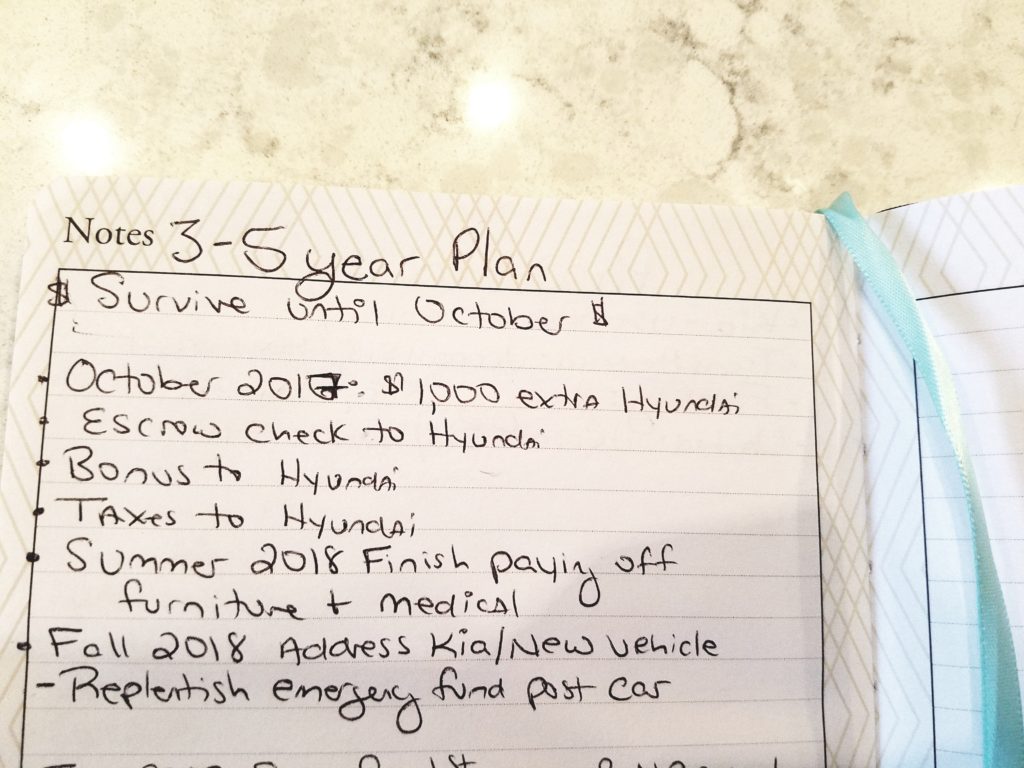 Notes 3-5 year Plan
$ Survive until October $
October 2017: $1,000 extra Hyundai
Escrow check to Hyundai
Bonus to Hyundai
Taxes to Hyundai
Summer 2018 Finish paying off
furniture + medical
Fall 2018 Address Kia/New vehicle
-Replentish emergery fund post car